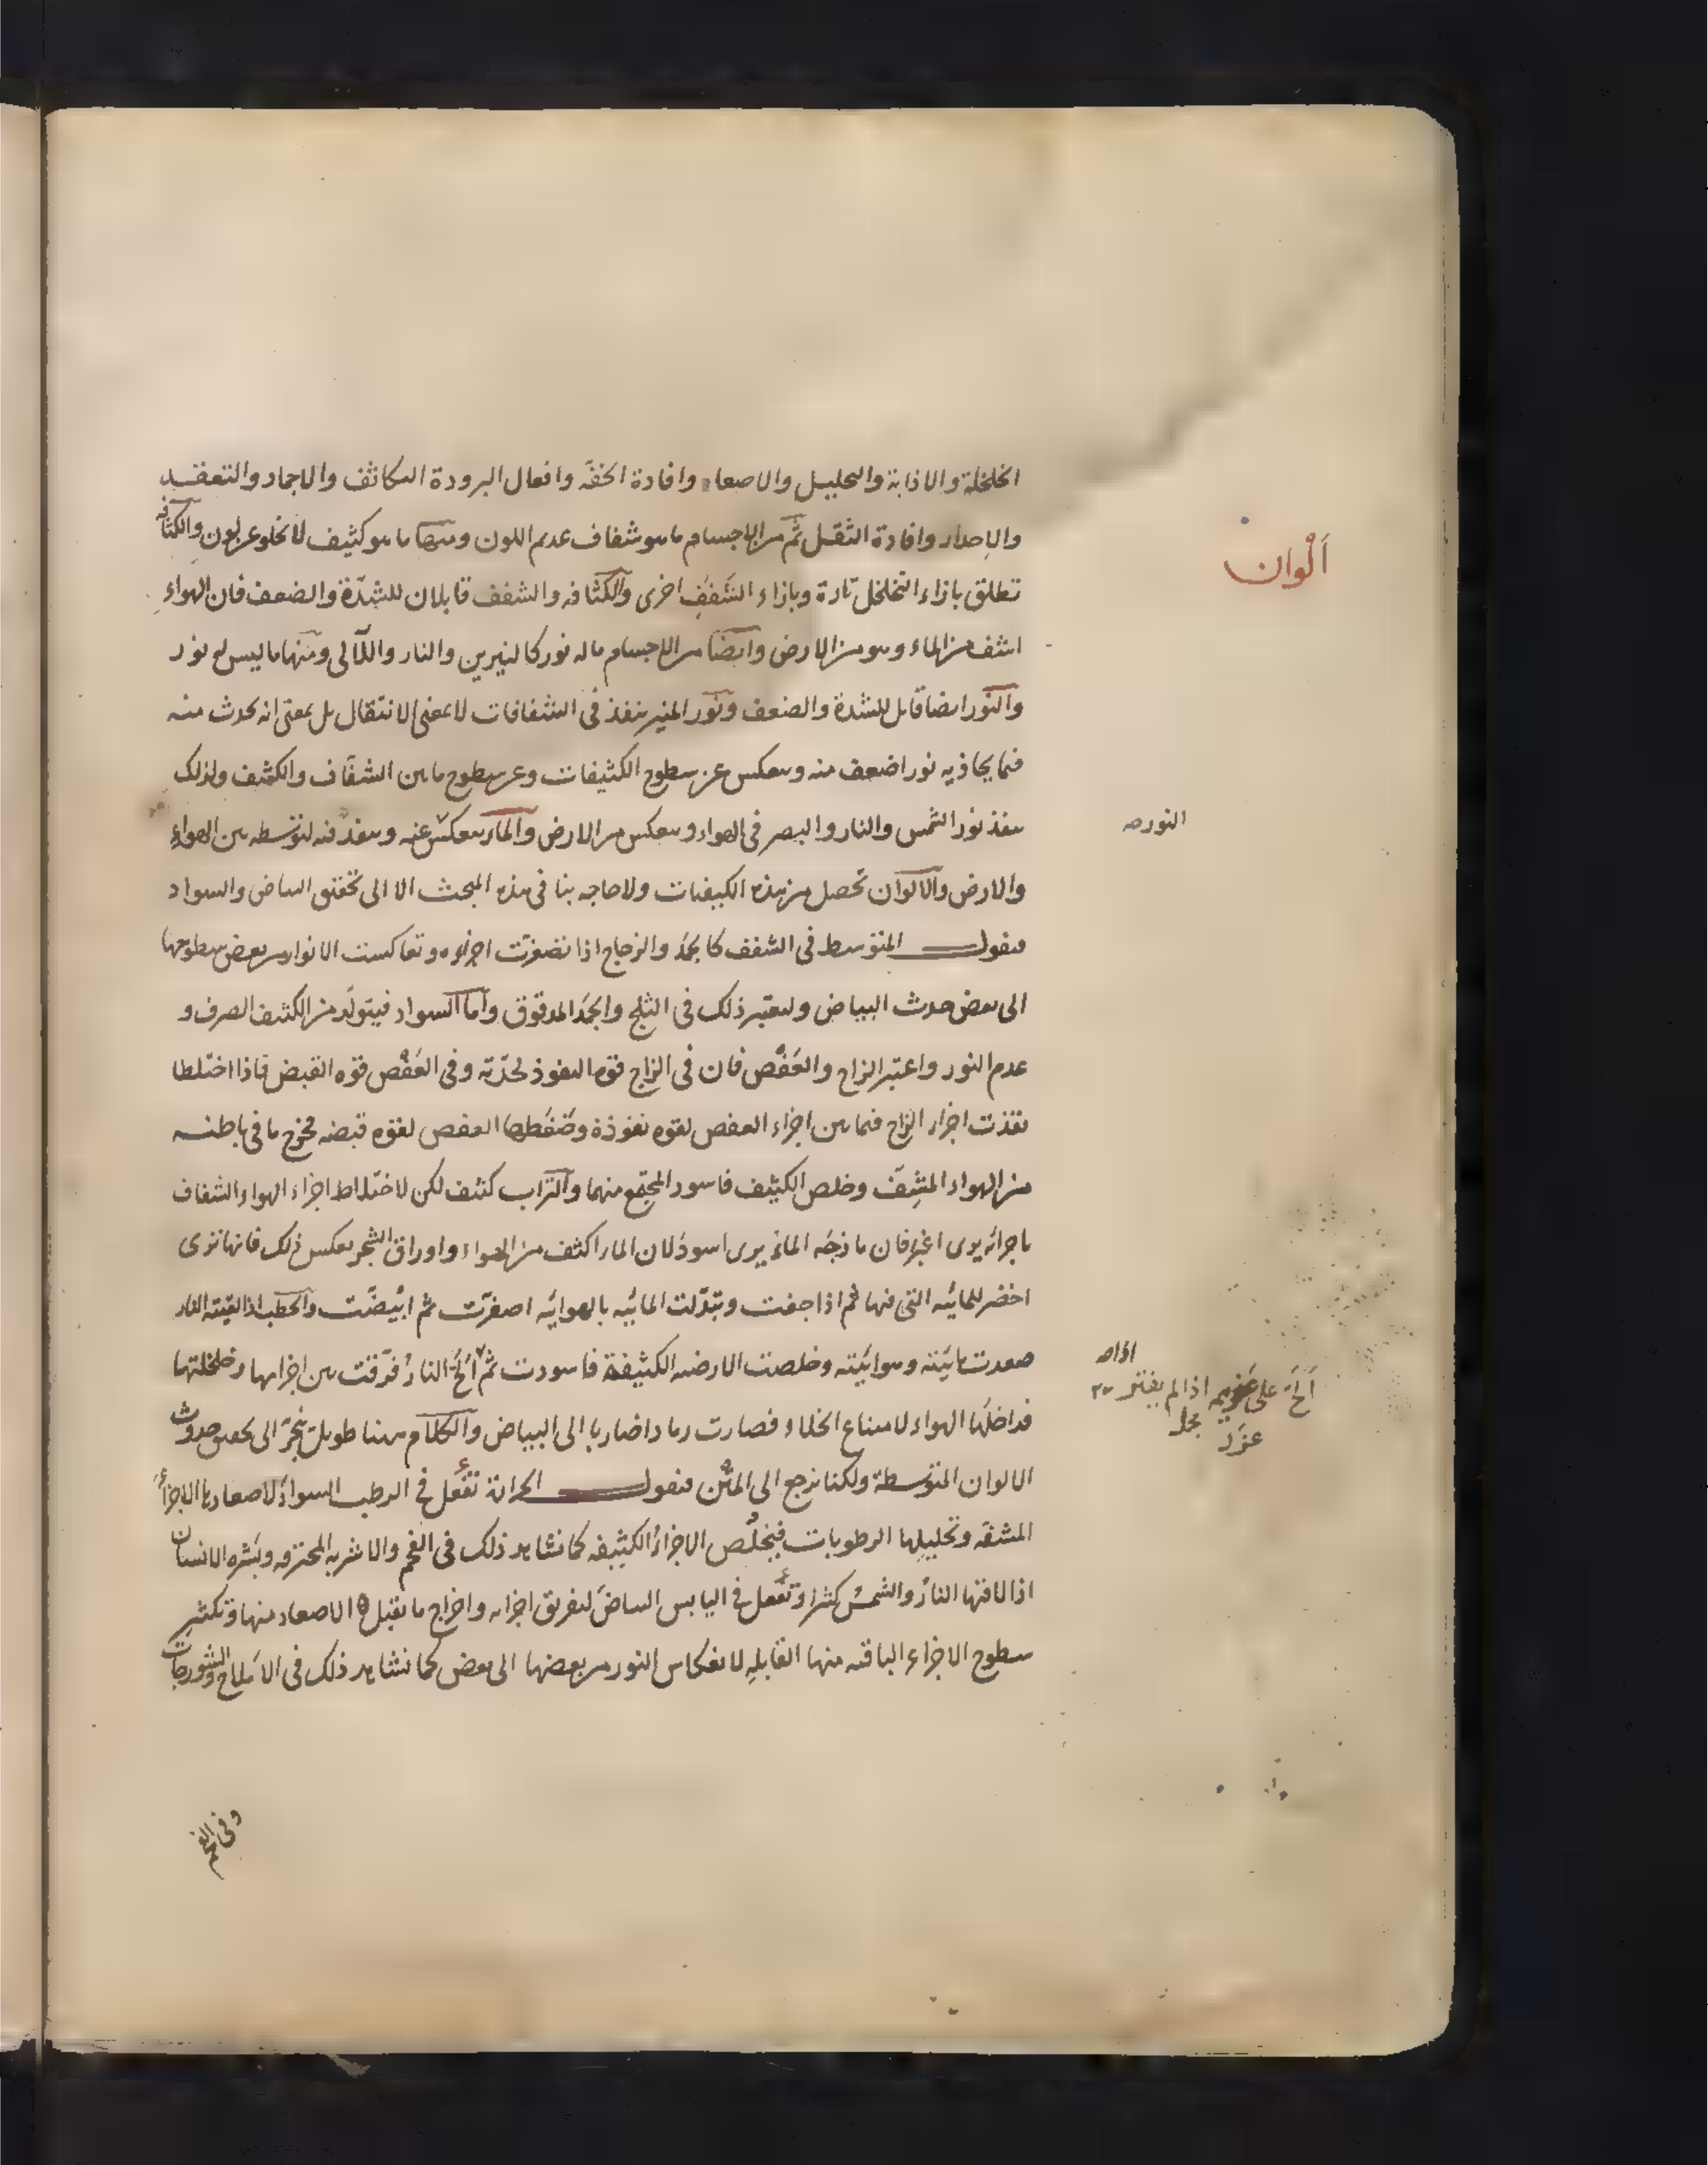 الخلخلة والاذابة والتحليل والاصعاد وافادة الخفّة وافعال البرودة التكاثف والاجماد والتعقيد
والاحدار وافادة الثقل ثم من الاجسام ما هو شفاف عديم اللون ومنها ما هو كثيف لا يخلو عن لون والكثافه
تطلق بازاء التخلخل تارة وبازاء الشَفَف اخرى والكثافه والشفف قابلان للشدّة والضعف فان الهواء
اشف من الماء وهو من الارض وايضا من الاجسام ما له نور كالنيرين والنار واللآلى ومنها ما ليس له نور
والنور ايضا قابل للشدة والضعف ونور المنير ينفذ فى الشفافات لا بمعنى الانتقال بل بمعنى انه يحدث منه
فيما يحاذيه نور اضعف منه وينعكس عن سطوح الكثيفات وعن سطوح ما بين الشفّاف والكثيف ولذلك
ينفذ نور الشمس والنار والبصر فى الهواء وينعكس من الارض والماء ينعكس عنه وينفذ فيه لتوسطه بين الهواء
والارض والالوان تحصل من هذه الكيفيات ولا حاجه بنا فى هذه المبحث الا الى تحقيق البياض والسواد
فنقول المتوسط فى الشفف كالجمد والزجاج اذا تصغرت اجزاوه وتعاكست الانوار من بعض سطوحها
الى بعض حدث البياض وليعتبر ذلك فى الثلج والجمد المدقوق واما السواد فيتولّد من الكثيف الصرف و
عدم النور واعتبر الزاج والعَفْص فان فى الزاج قوه النفوذ لحدّته وفى العَفْص قوه القبض فاذا اختلطا
نفذت اجزاء الزاج فيما بين اجزاء العفص لقوه نفوذة وضغطها العفص لقوه قبضه فخرج ما فى باطنه
من الهواء المشِفّ وخلص الكثيف فاسود المجتمع منهما والتراب كثيف لكن لاختلاط اجزاء الهواء الشفاف
باجزائه يرى اغبر فان مازجَه الماءُ يرى اسودَ لان الماء اكثف من الهواء واوراق الشجر بعكس ذلك فانها ترى
اخضر للمائيّه التى فيها ثم اذا جفت وتبدّلت المائيّه بالهوائيّه اصفرّت ثم ابيضّت والحطب اذا لقيته النار
صعدت مائيّته وهوائيّته وخلصت الارضيه الكثيفة فاسودت ثم الحّ النارُ فرّقت بين اجزايها وخلخلتها
فداخلَها الهواء لامتناع الخلاء فصارت رمادا ضاربا الى البياض والكلام ههنا طويل ينجرّ الى تحقيق حدوث
الالوان المتوسطة ولكنا نرجع الى المتْن فنقول الحرارة تفعل فى الرطب السوادَ لاصعادها الاجزاءَ
المشفّه وتحليلها الرطوبات فيخلُص الاجزاءُ الكثيفه كما نشاهد ذلك فى الفحم والاشربه المحترقه وبَشره الانسان
اذا لاقتها النارُ والشمسُ كثيرا وتفعل فى اليابس البياضَ لتفريق اجزايه واخراج ما يقبل الاصعاد منها وتكثير
سطوح الاجزاء الباقيه منها القابلهِ لانعكاس النور من بعضها الى بعض كما نشاهد ذلك فى الاملاح والشورجات
اَلْوان
النور صه
اذا صه
اَلَحّ على غريمه اذا لم يفتر
مجمل
وفى